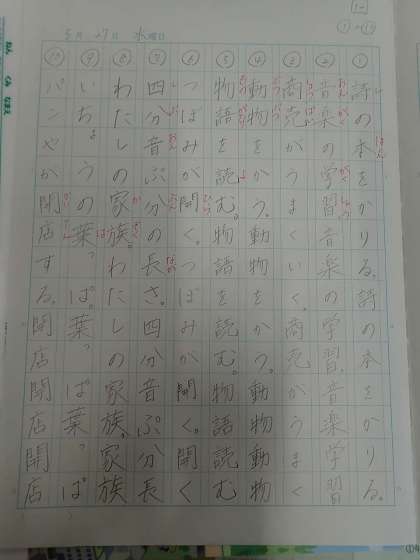 5月27日 水曜日
①詩の本をかりる。詩の本をかりる。
②音楽の学習。音楽の学習。音楽学習
③商売がうまくいく。商売がうまく
④動物をかう。動物をかう。動物動物
⑤物語を読む。物語を読む。物語読む
⑥つぼみが開く。つぼみが開く。開く
⑦四分音ぷ分の長さ。四分音ぷ分長
⑧わたしの家族。わたしの家族。家族
⑨いちょうの葉っぱ。葉っぱ葉っぱ
⑩パンやが開店する。開店開店開店